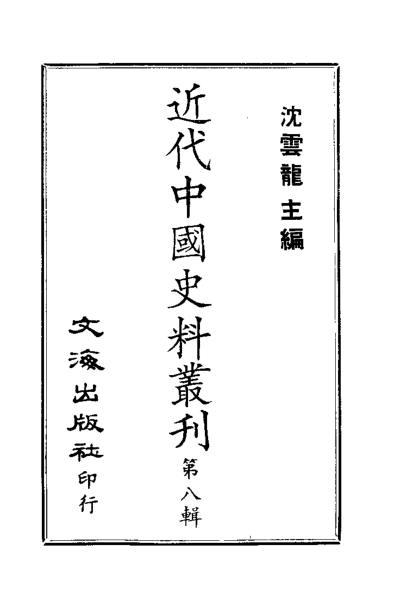 沈雲龍主編
近代中國史料叢刊第八輯
文海出版社印行